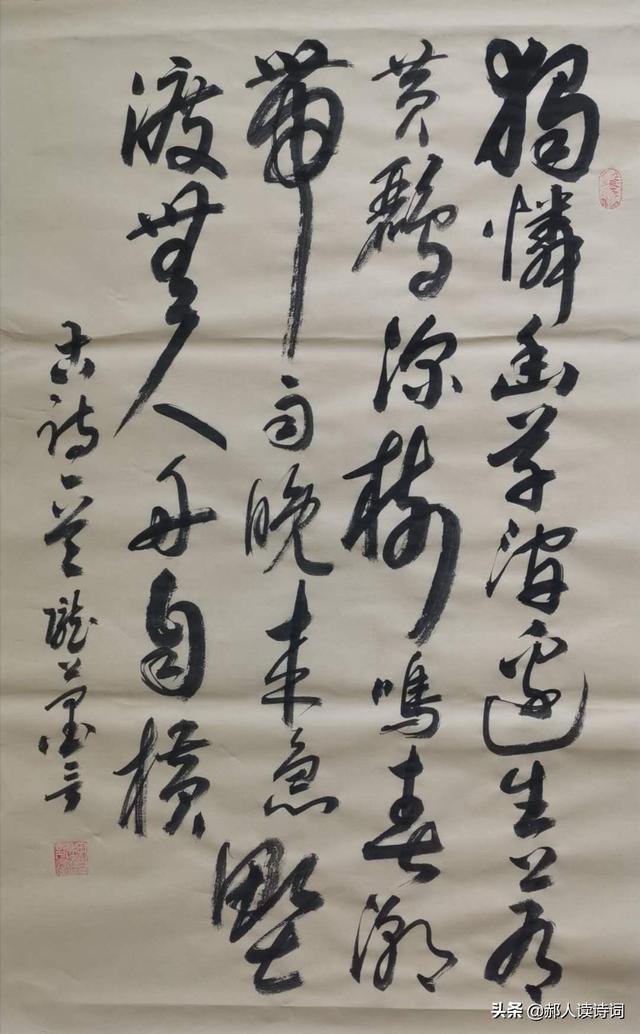 獨憐幽草澗邊生上有
黄鸝深樹鳴春潮
帶雨晚来急野
渡無人舟自横
古詩一首
头条 @郝人读诗词